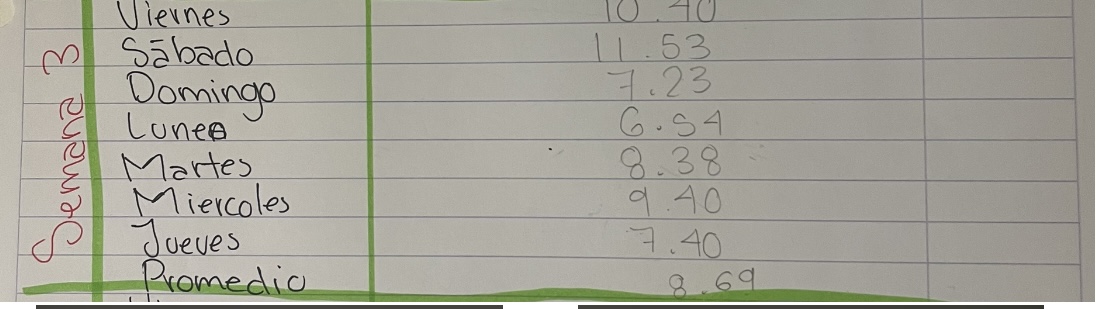 Viernes 10.40
Sábado 11.53
Domingo 7.23
Lunes 6.54
Martes 8.38
Miercoles 9.40
Jueves 7.40
Promedio 8.69
Semana 3